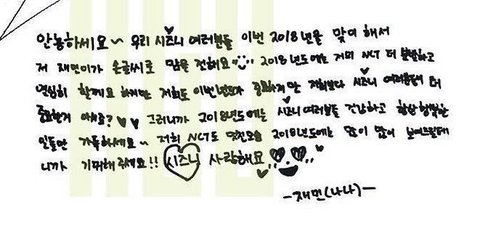 안농하세요~ 우리 시즈니 여러분들 이번 2018년을 맞이 해서
저 재민이가 손글씨로 맘을 전해요 2018년도에는 저희 NCT 더 분발하고
열심히 할게요 하지만 저희도 이번년도가 중요하지만 저희보다 시즈니 여러분들이 더
중요한거 아시죠? 그러니까 2018년도에는 시즈니 여러분들 건강하고 항상 행복한
일들만 가득하세요~ 저희 NCT도 2018년도에는 많이 많이 보여드릴테
니까 기대해 주세요!! 시즈니 사랑해요
-재민(나나)-